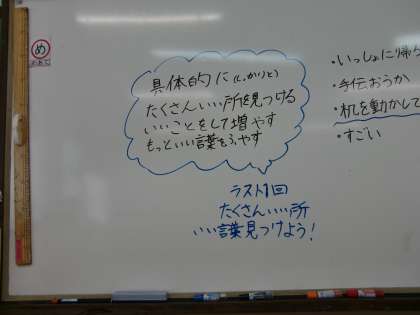 め
めあて
具体的に(しっかりと)
たくさんいい所を見つける
いいことをして増やす
もっといい言葉をふやす
ラスト1回
たくさんいい所
いい言葉見つけよう!
・いっしょに帰
・手伝おうか
・机を動かして
・すごい